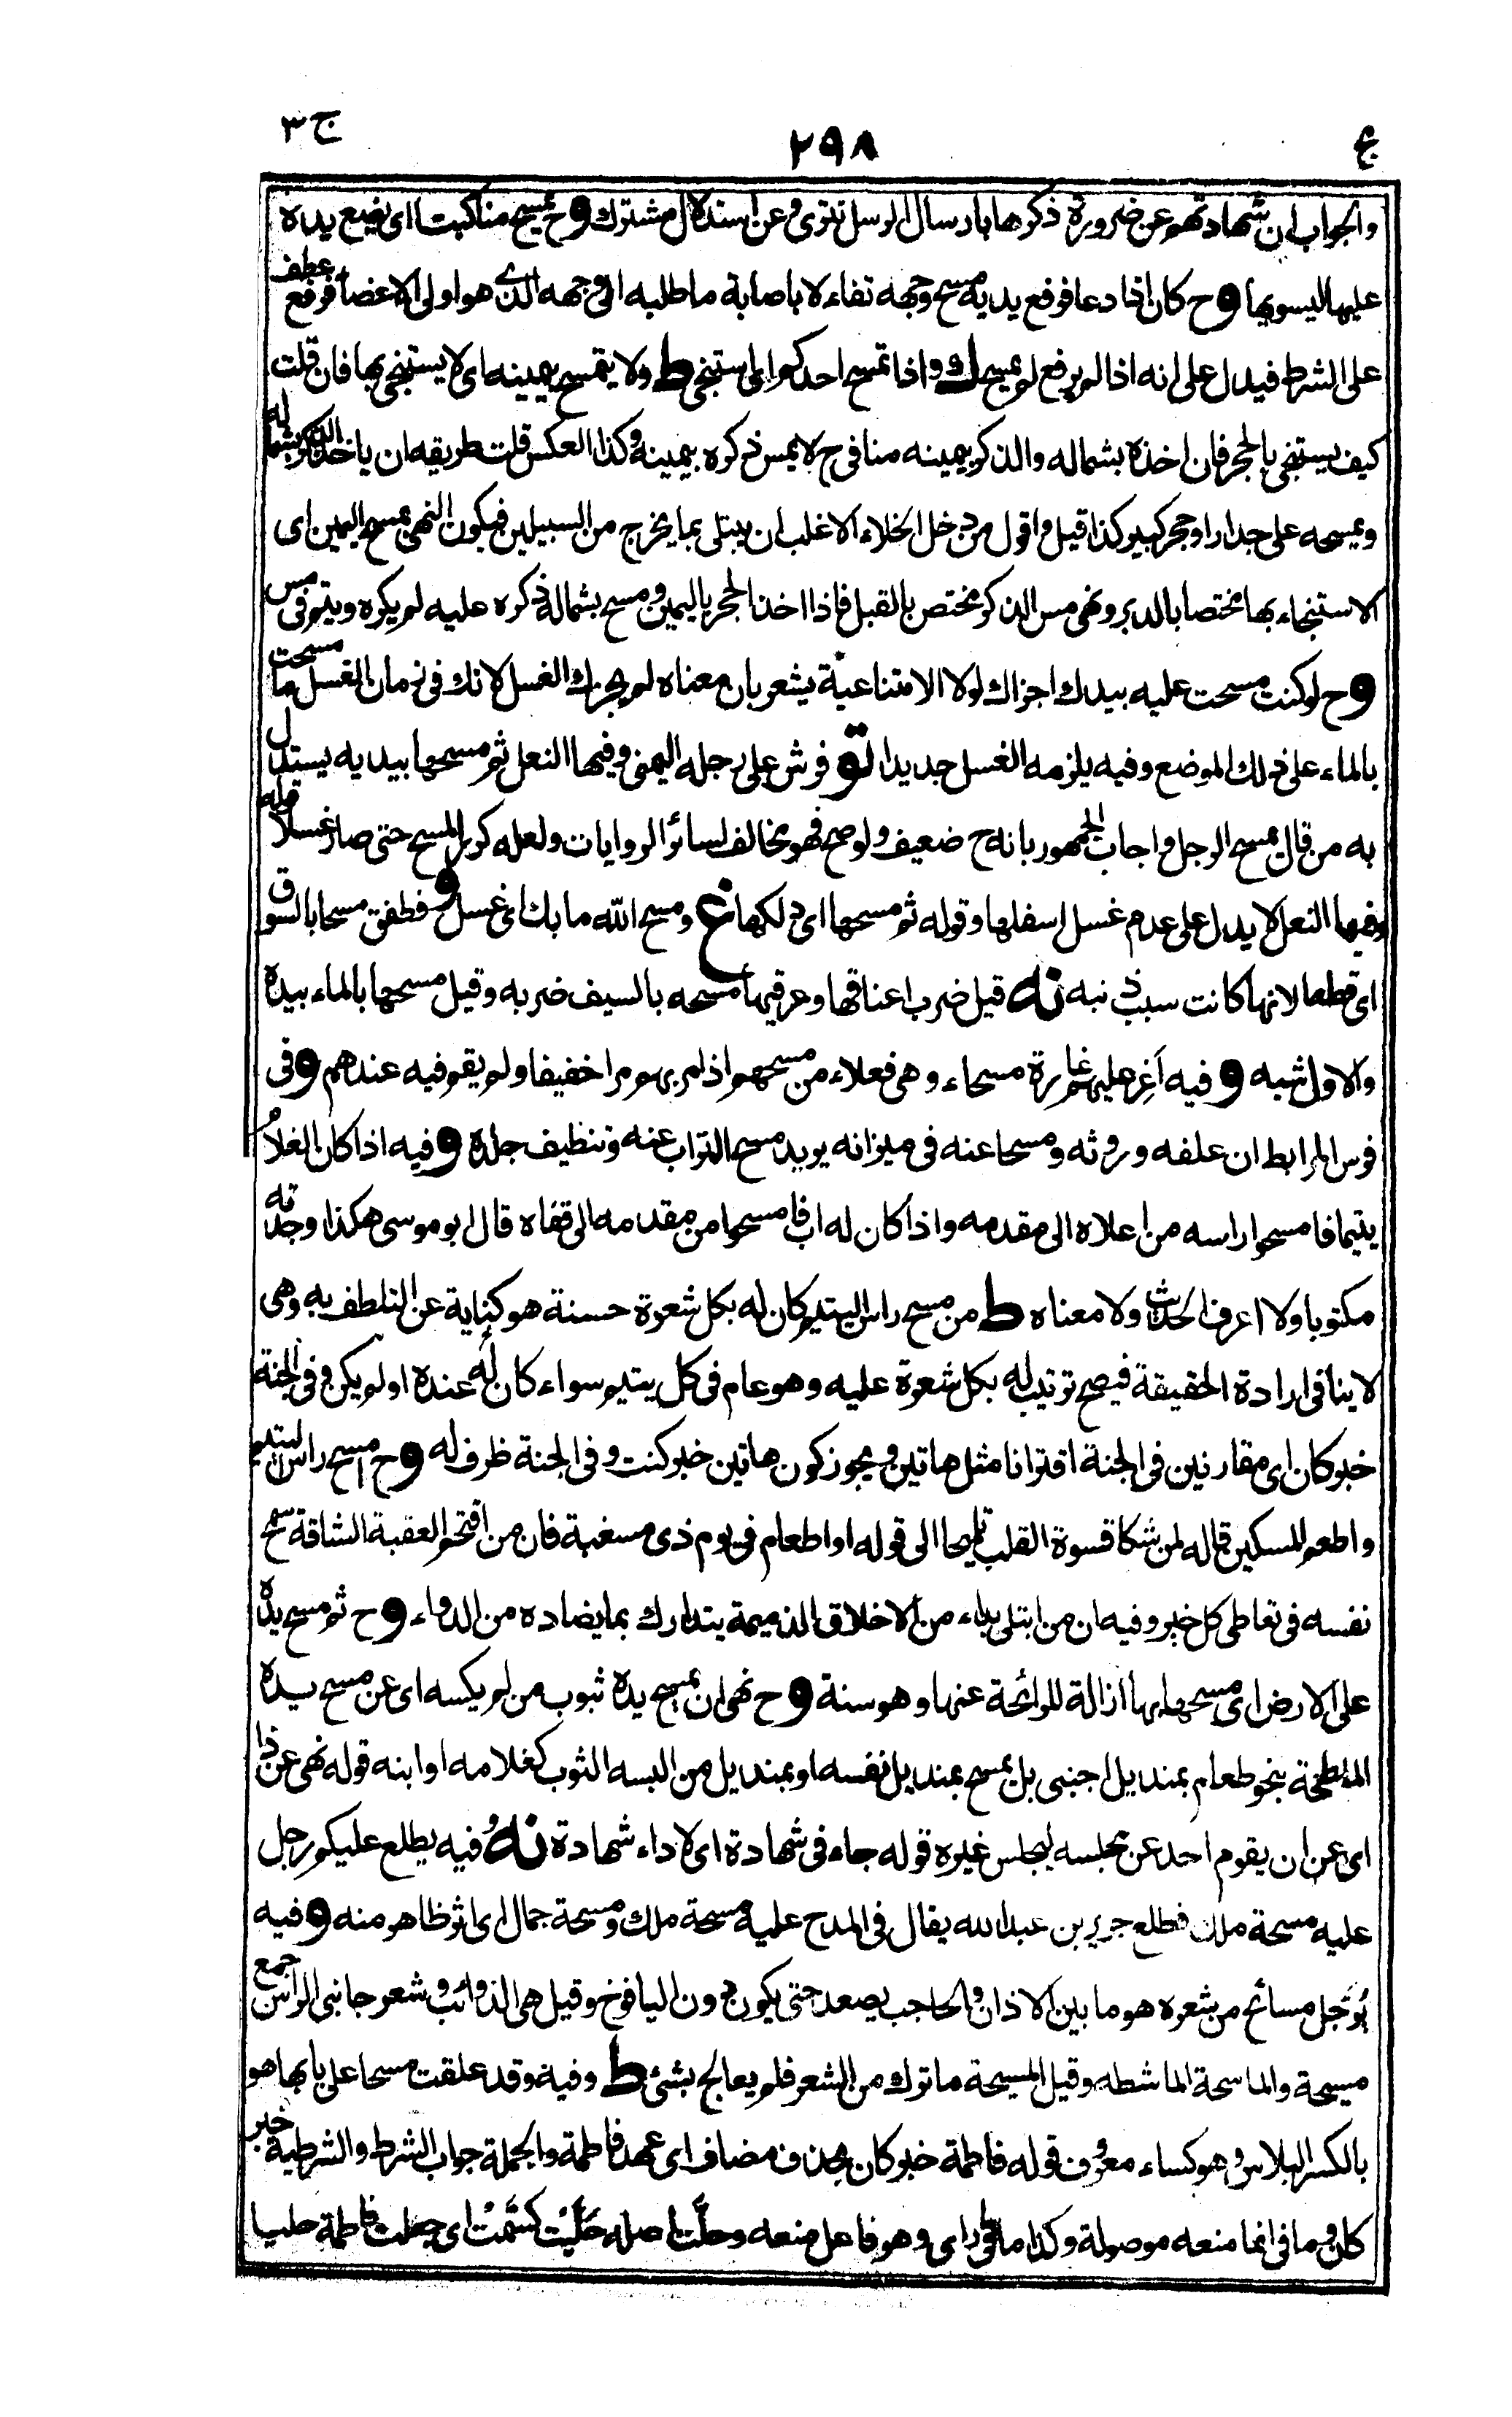 ج٣
٢٩٨
ع
والجواب ان شهادتهو عن ضرورة ذكرها بارسال الرسل تترى وعن استدلال مشترك و ح يمسح مناكبنا اى يضع يده
عليها ليسويها و ح كان اذا دعا فرفع يديه مسح وجهه تفاءلا باصابة ما طلبه الى وجهه الذى هو اولى الاعضاء فرفع عطف
على الشرط فيدل على انه اذا لم يرفع لم يمسح ك واذا تمسح احدكم اى استنجى ط ولا يتمسح بيمينه اى لا يستنجى بها فان قلت
كيف يستنجى بالحجر فان اخذه بشماله والذكر بيمينه منافى ح لا يمس ذكره بيمينه وكذا العكس قلت طريقه ان ياخذ الذكر بشماله
ويمسحه على جدار او حجر كبير كذا قيل واقول من دخل الخلاء الاغلب ان يبتلى بما يخرج من السبيلين فيكون النهى بمسح اليمين اى
الاستنجاء بها مختصا بالدبر ونهى مس الذكر مختص بالقبل فاذا اخذ الحجر باليمين ومسح بشماله ذكره عليه لم يكره ويتم فى مس
و ح لو كنت مسحت عليه بيدك اجزاك لولا الامتناعية يشعر بان معناه لم يجزك الغسل لانك فى زمان الغسل ما مسحت
بالماء على ذلك الموضع وفيه يلزمه الغسل جديدا تو فرش على رجله اليمنى وفيها النعل ثم مسحها بيديه يستدل
به من قال يمسح الرجل واجاب الجمهور بانه ح ضعيف ولو صح فهو مخالف لسائر الروايات ولعله كرر المسح حتى صار غسلا قوله
وفيها النعل لا يدل على عدم غسل اسفلها وقوله ثم مسحها اى دلكها غ ومسح الله ما بك اى غسل و فطفق مسحا بالسوق
اى قطعا لانها كانت سبب ذنبه نه قيل ضرب اعناقها وعرقيها مسحه بالسيف ضربه وقيل مسحها بالماء بيده
والاول اشبه و فيه اغر عليهم غارة مسحاء وهى فعلاء من مسحهم اذ امر بهم مرا خفيفا ولم يقم فيه عندهم و فى
فرس المرابط ان علفه وروثه ومسحا عنه فى ميزانه يريد مسح التراب عنه وتنظيف جلده و فيه اذا كان الغلام
يتيما فامسحوا راسه من اعلاه الى مقدمه واذا كان له اب فامسحوا من مقدمه الى قفاه قال ابو موسى هكذا وجدته
مكتوبا ولا اعرف الحديث ولا معناه ط من مسح راس اليتيم كان له بكل شعرة حسنة هو كناية عن التلطف به وهى
لا ينافى ارادة الحقيقة فيصح ترتيب له بكل شعرة عليه وهو عام فى كل يتيم سواء كان له عنده او لم يكن وفى الجنة
خبر كان اى مقارنين فى الجنة اقترانا مثل هاتين ويجوز كون هاتين خبر كنت وفى الجنة ظرف له و ح امسح راس اليتيم
واطعم المسكين قاله لمن شكا قسوة القلب تلميحا الى قوله او اطعام فى يوم ذى مسغبة فان من اقتحم العقبة الشاقة سمح
نفسه فى تعاطى كل خير وفيه ان من ابتلى بداء من الاخلاق الذميمة يتدارك بما يضاده من الدواء و ح ثم مسح يده
على الارض اى مسحها بها ازالة للرائحة عنها وهو سنة و ح نهى ان يمسح يده بثوب من لم يكسه اى عن مسح يده
الملطخة بنحو طعام بمنديل اجنبى بل يمسح بمنديل نفسه او بمنديل من البسه الثوب كغلامه او ابنه قوله نهى عن ذا
اى عن ان يقوم احد عن مجلسه ليجلس غيره قوله جاء فى شهادة اى لاداء شهادة نه فيه يطلع عليكم رجل
عليه مسحة ملك فطلع جرير بن عبدالله يقال فى المدح عليه مسحة ملك ومسحة جمال اى اثر ظاهر منه و فيه
يُرَجل مسائح من شعره هو ما بين الاذان والحاجب يصعد حتى يكون دون اليافوخ وقيل هى الذوائب وشعر جانبى الراس جمع
مسيحة والماسحة الماشطه وقيل المسيحة ما ترك من الشعر فلم يعالج بشئ ط وفيه وقد علقت مسحا على بابها هو
بالكسر البلاس وهو كساء معروف قوله فاطمة خبر كان بحذف مضاف اى عهد فاطمة والجملة جواب الشرط والشرطية خبر
كان وما فى انما منعه موصولة وكذا ما فى راى وهو فاعل منعه وحلَّت اصله حَلَّيَت كسَمَّيَت اى جعلت فاطمة حليا